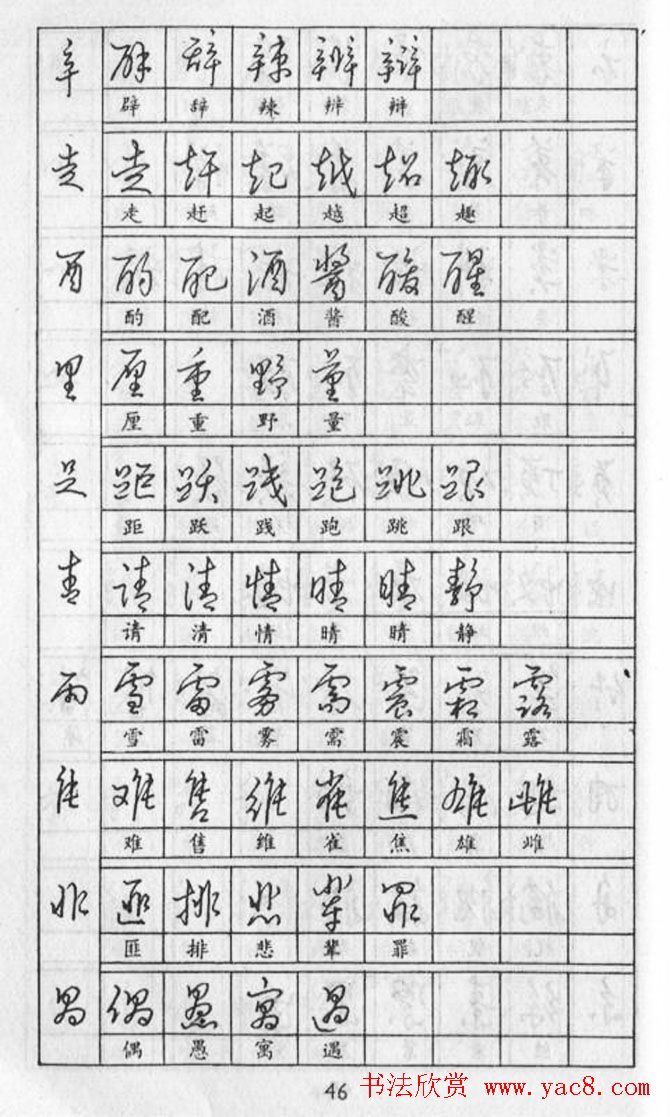 辛 辟 辞 辣 辨 辩
辟 辞 辣 辨 辩
走 走 赶 起 越 超 趣
走 赶 起 越 超 趣
酉 酌 配 酒 酱 酸 醒
酌 配 酒 酱 酸 醒
里 厘 重 野 量
厘 重 野 量
足 距 跃 践 跑 跳 跟
距 跃 践 跑 跳 跟
青 请 清 情 晴 睛 静
请 清 情 晴 睛 静
雨 雪 雷 雾 需 震 霜 露
雪 雷 雾 需 震 霜 露
隹 难 售 维 雀 焦 雄 雌
难 售 维 雀 焦 雄 雌
非 匪 排 悲 辈 罪
匪 排 悲 辈 罪
禺 偶 愚 寓 遇
偶 愚 寓 遇
46 书法欣赏 www.yac8.com